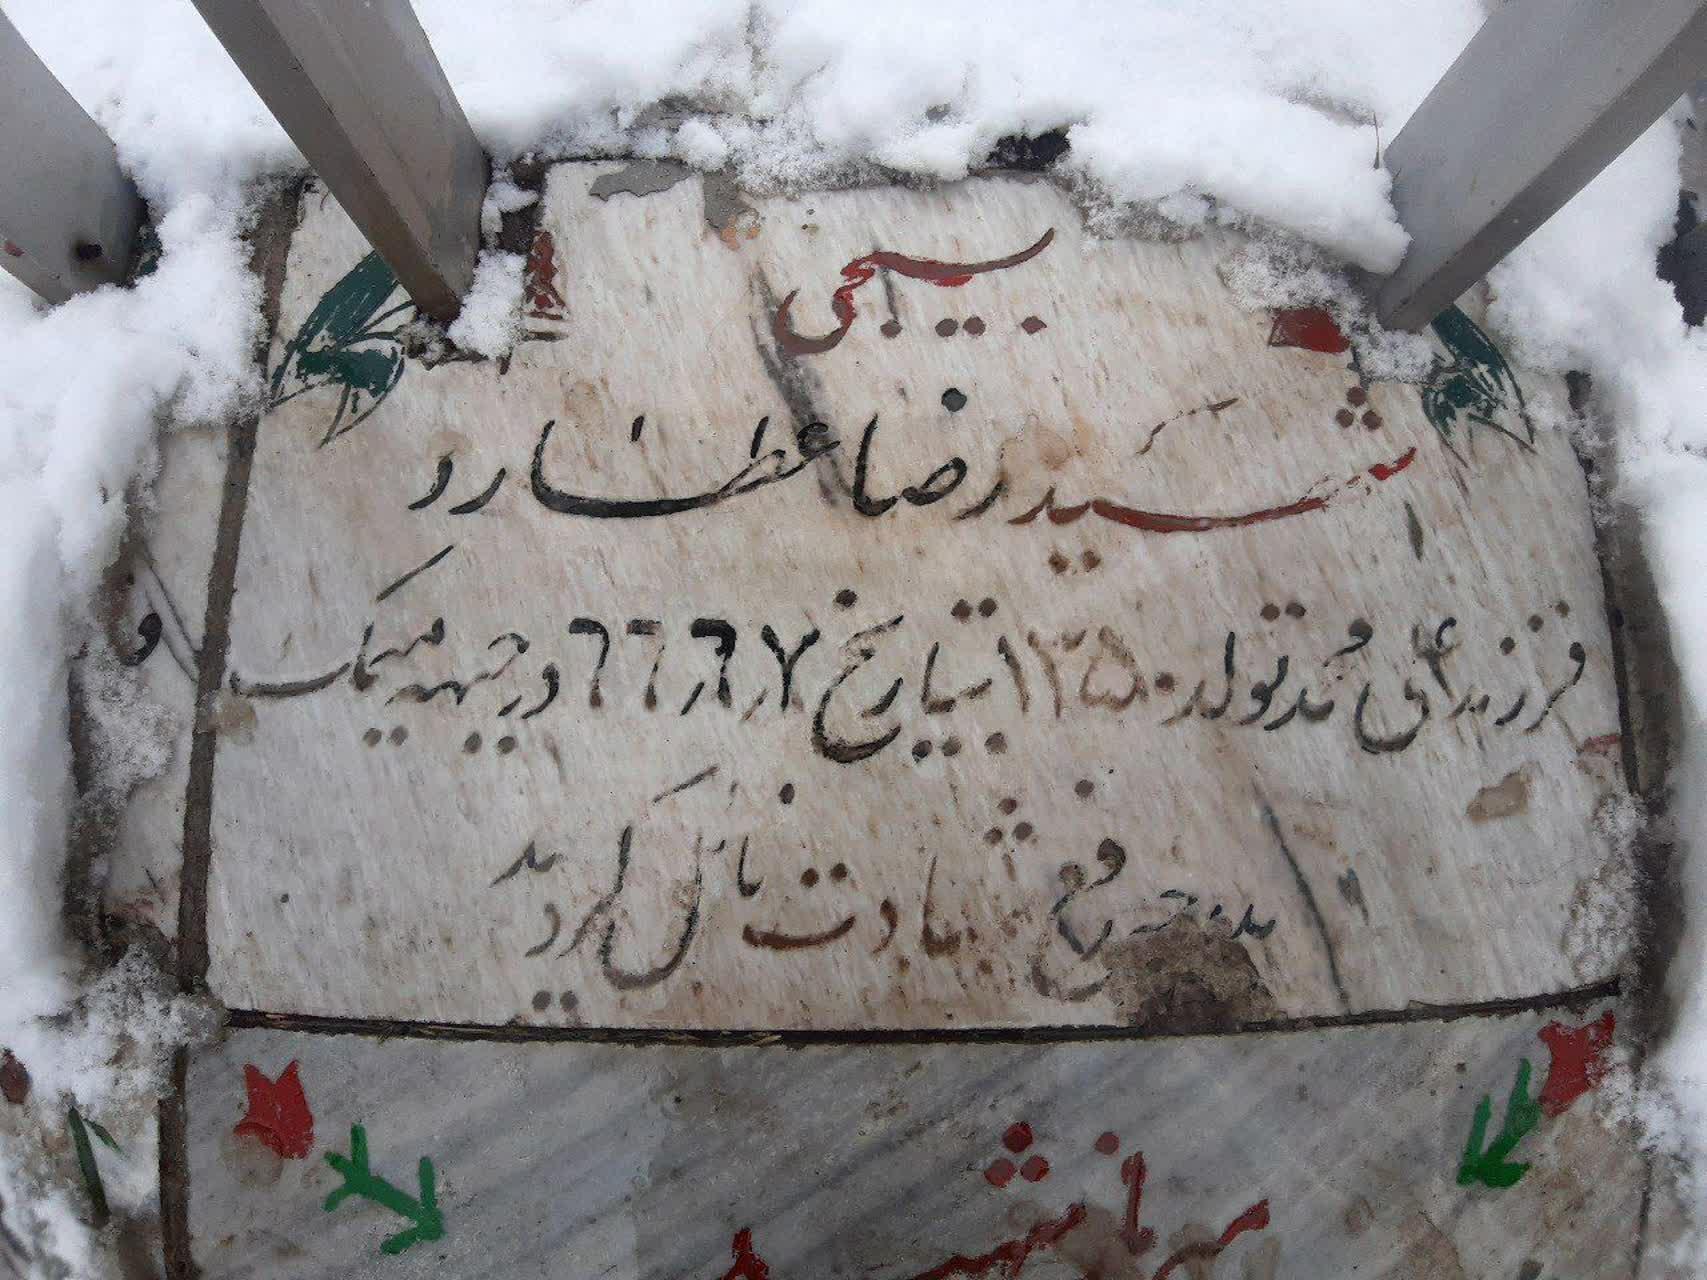 بسیجی
شهید رضا عطارد
فرزند علی محمد تولد ۱۳۵۰ بتاریخ ٦٦٫٦٫۷ در جبهه میمک
بدرجه رفیع شهادت نائل گردید